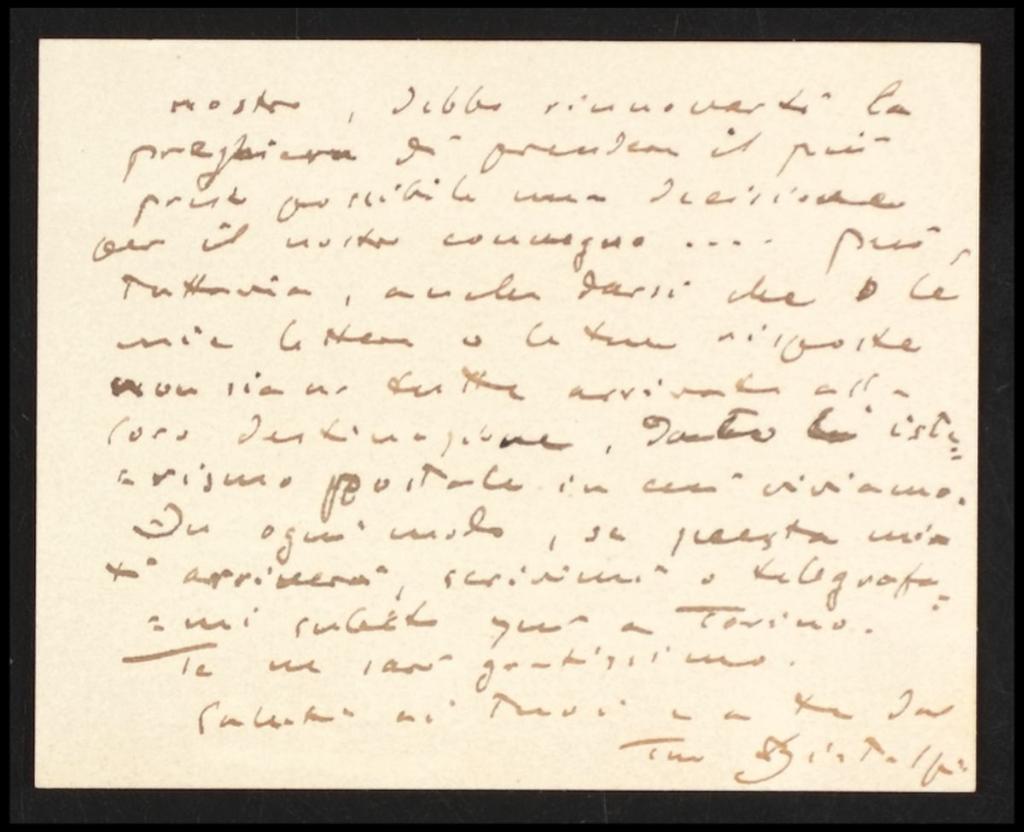 nostro, debbo rinnovarti la
preghiera di prendere il più
presto possibile una decisione
per il nostro convegno .... Può
tuttavia, anche darsi che o le
mie lettere o le tue risposte
non siano tutte arrivate alla
loro destinazione, dato lo iste=
=rismo postale in cui viviamo.
In ogni modo, se questa mia
ti arriverà, scrivimi o telegrafa=
=mi subito qui a Torino.
Te ne sarò gratissimo.
Saluti ai tuoi e a te dal
Tuo Bistolfi